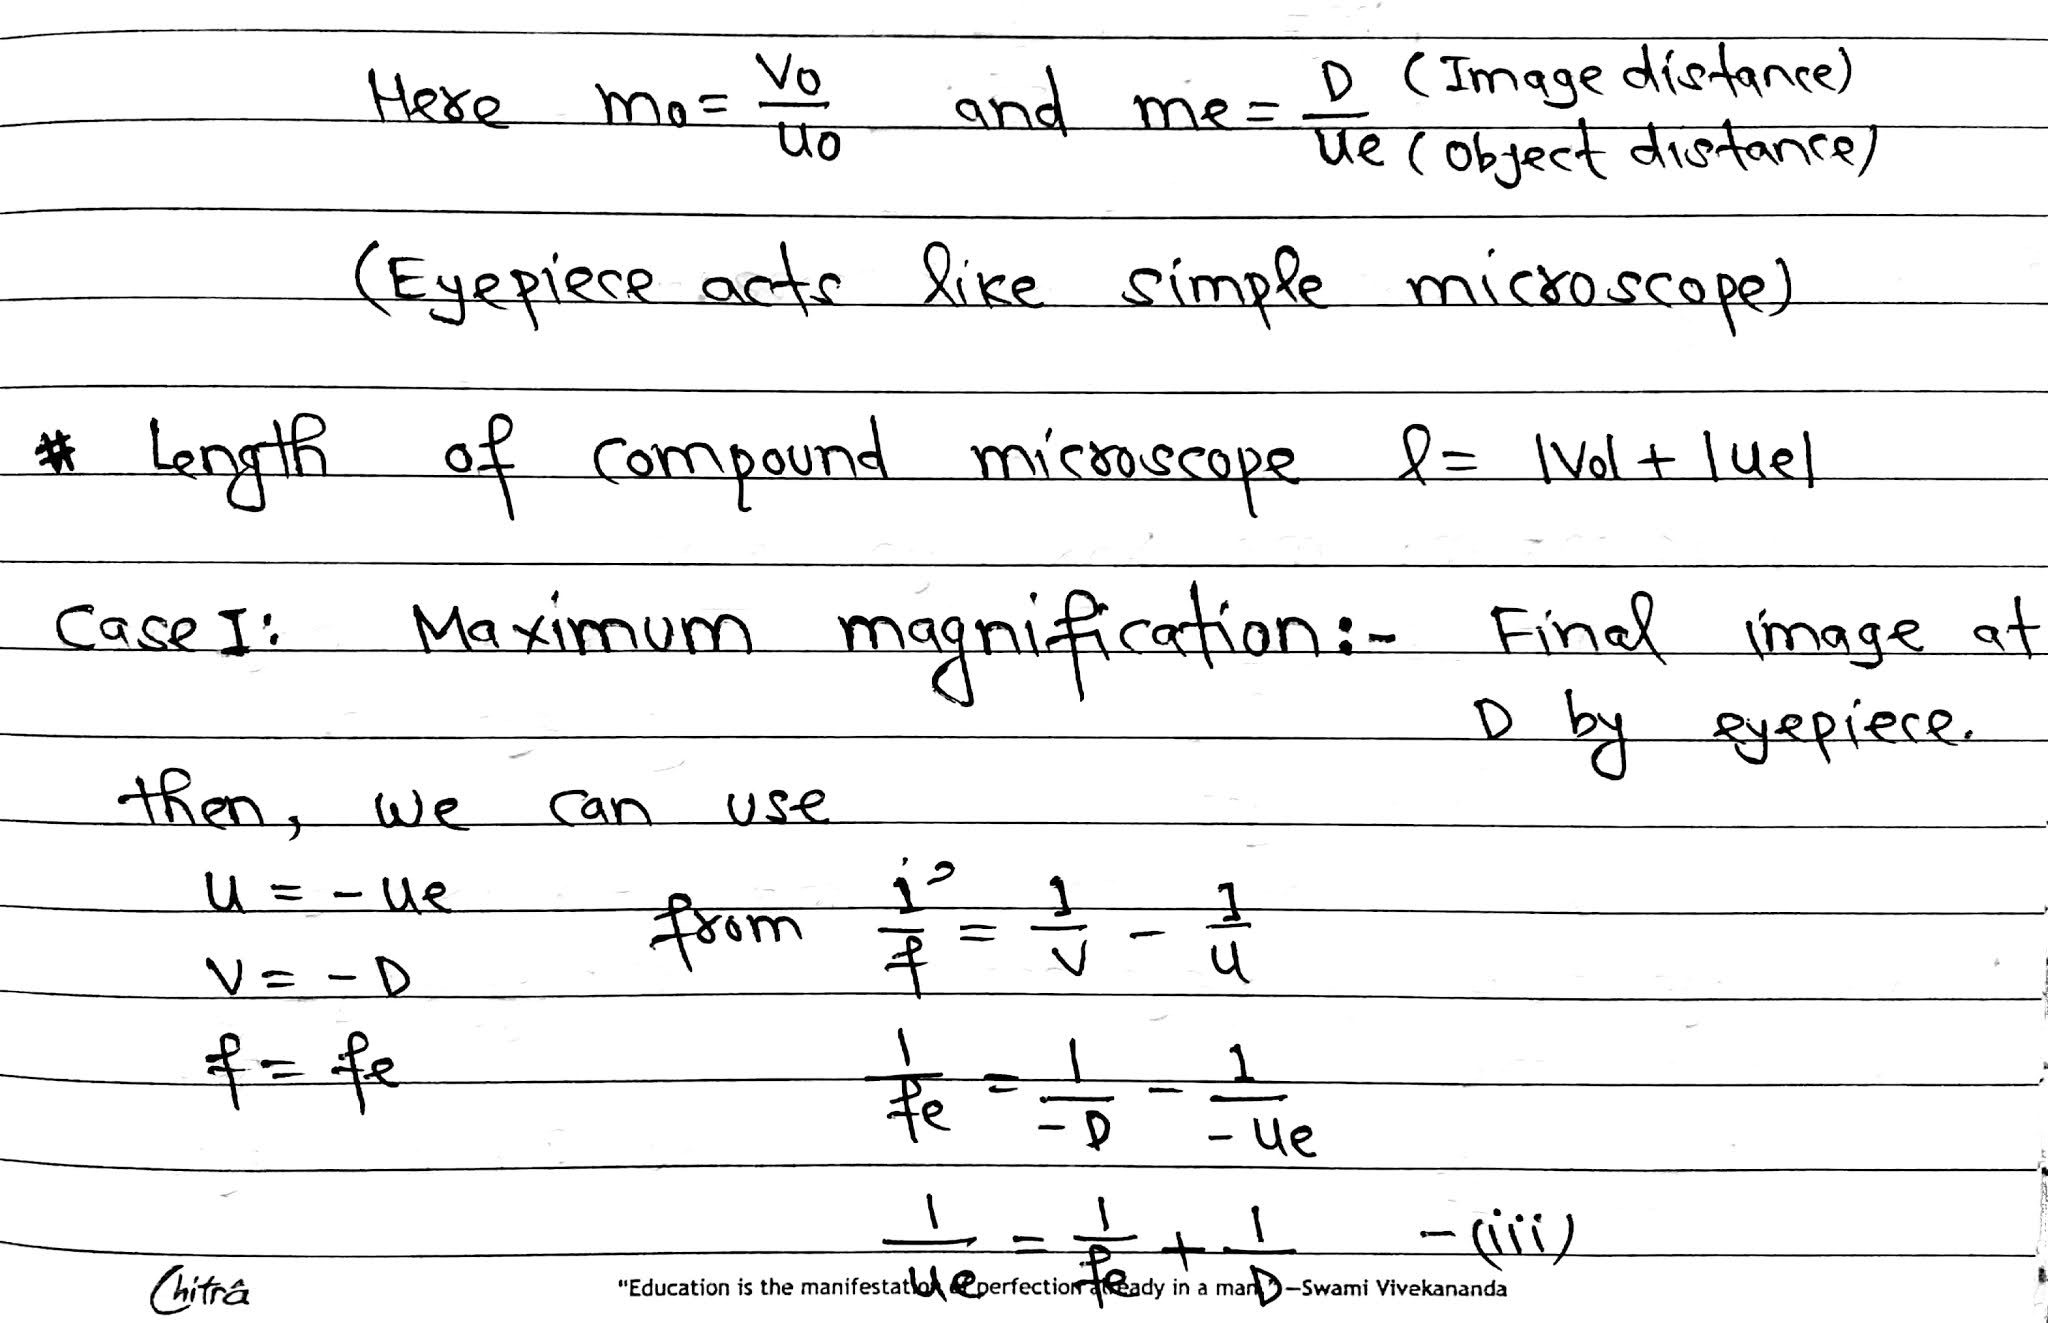 Here mo = Vo/uo and me = D (Image distance)/ue (object distance)
(Eyepiece acts like simple microscope)
# Length of compound microscope l = |Vo| + |ue|
Case I: Maximum magnification:- Final image at
D by eyepiece.
then, we can use
u = - ue from 1/f = 1/v - 1/u
v = - D
f = fe 1/fe = 1/-D - 1/-ue
1/ue = 1/fe + 1/D - (iii)
Chitrâ "Education is the manifestation of perfection already in a man"–Swami Vivekananda